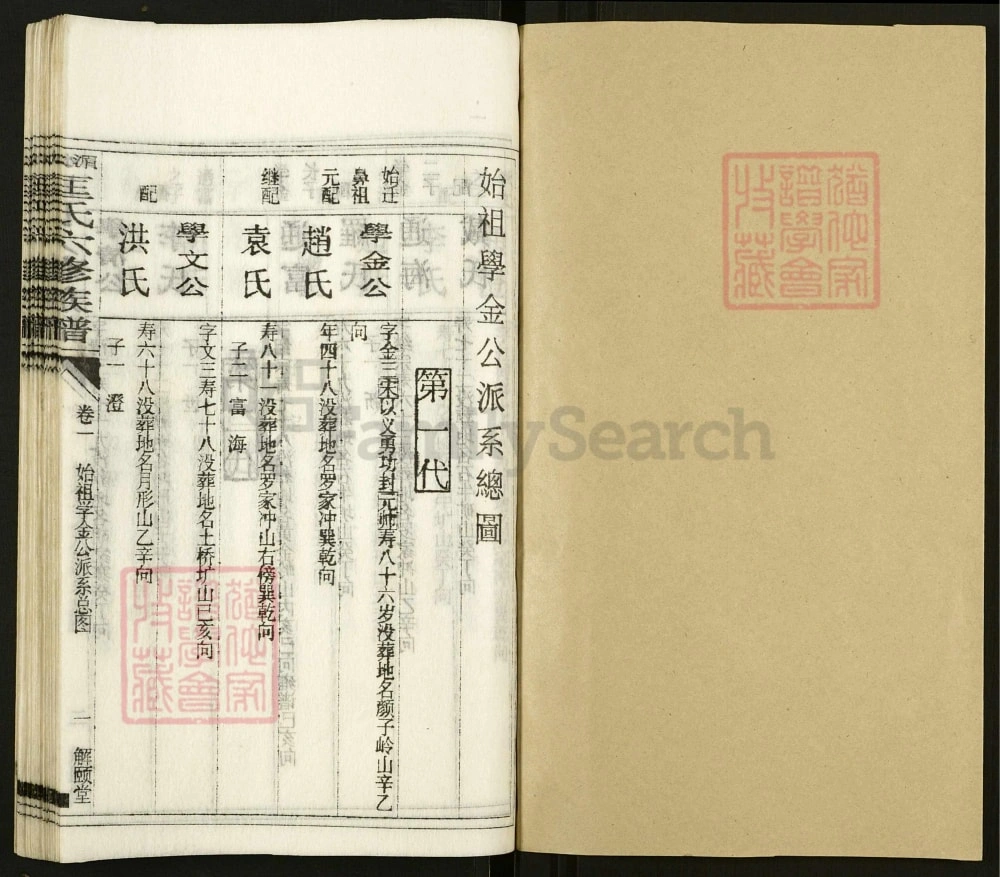 始祖學金公派系總圖
第一代
始迁鼻祖
學金公
字金三宋以义勇功封元帅寿八十六岁没葬地名颜子岭山辛乙
向
元配
趙氏
年四十八没葬地名罗家冲巽乾向
继配
袁氏
寿八十一没葬地名罗家冲山右傍巽乾向
子二 富 海
學文公
字文三寿七十八没葬地名土桥圹山巳亥向
配
洪氏
寿六十八没葬地名月形山乙辛向
子一 澄
王氏六修族谱
卷一 始祖学金公派系总图
一 解颐堂
FamilySearch